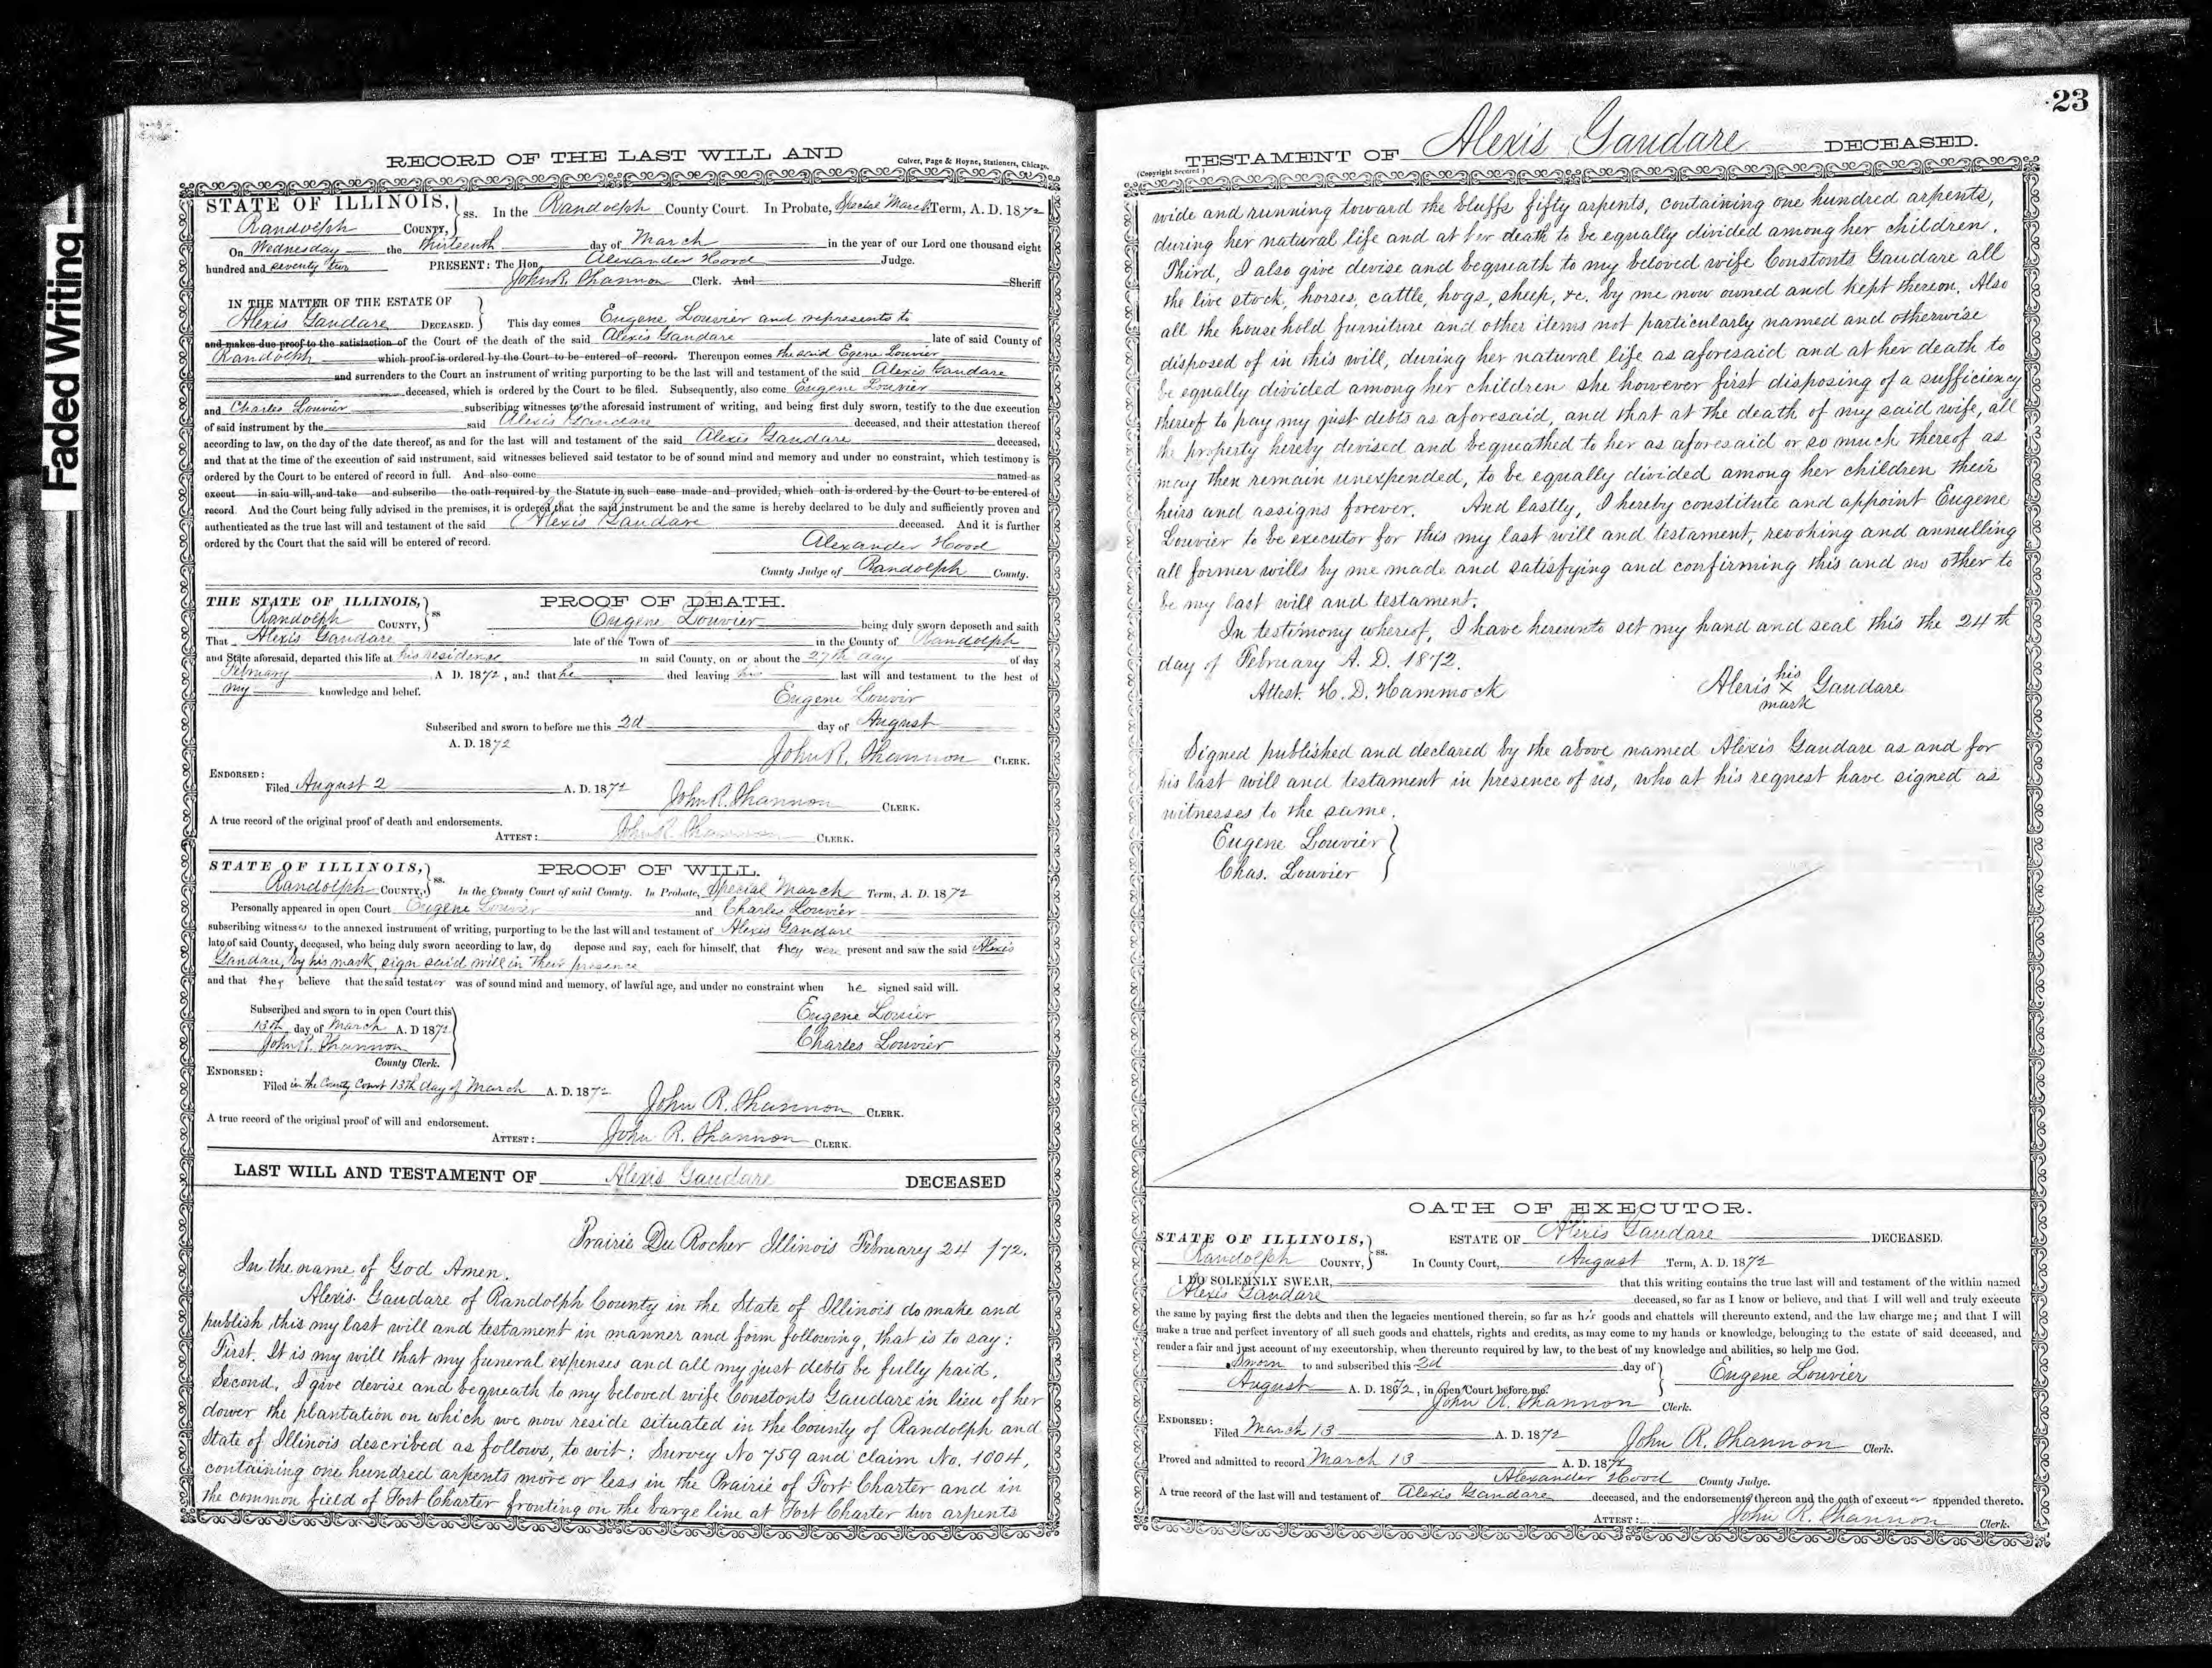 Faded Writing
RECORD OF THE LAST WILL AND
Culver, Page & Hoyne, Stationers, Chicago.
STATE OF ILLINOIS, } ss. In the Randolph County Court. In Probate, Special March Term, A. D. 1872
Randolph COUNTY,
On Wednesday the thirteenth day of March in the year of our Lord one thousand eight
hundred and seventy two PRESENT: The Hon. Alexander Hood Judge.
John R. Shannon Clerk. And Sheriff
IN THE MATTER OF THE ESTATE OF
Alexis Gaudare DECEASED. } This day comes Eugene Louvier and represents to
and makes due proof to the satisfaction of the Court of the death of the said Alexis Gaudare late of said County of
Randolph which proof is ordered by the Court to be entered of record. Thereupon comes the said Egene Louvier
and surrenders to the Court an instrument of writing purporting to be the last will and testament of the said Alexis Gaudare
deceased, which is ordered by the Court to be filed. Subsequently, also come Eugene Louvier
and Charles Louvier subscribing witnesses to the aforesaid instrument of writing, and being first duly sworn, testify to the due execution
of said instrument by the said Alexis Gaudare deceased, and their attestation thereof
according to law, on the day of the date thereof, as and for the last will and testament of the said Alexis Gaudare deceased,
and that at the time of the execution of said instrument, said witnesses believed said testator to be of sound mind and memory and under no constraint, which testimony is
ordered by the Court to be entered of record in full. And also come named as
execut in said will, and take and subscribe the oath required by the Statute in such case made and provided, which oath is ordered by the Court to be entered of
record. And the Court being fully advised in the premises, it is ordered that the said instrument be and the same is hereby declared to be duly and sufficiently proven and
authenticated as the true last will and testament of the said Alexis Gaudare deceased. And it is further
ordered by the Court that the said will be entered of record.
Alexander Hood
County Judge of Randolph County.
THE STATE OF ILLINOIS, } ss PROOF OF DEATH.
Randolph COUNTY, Eugene Louvier being duly sworn deposeth and saith
That Alexis Gaudare late of the Town of in the County of Randolph
and State aforesaid, departed this life at his residence in said County, on or about the 27th day of day
February A. D. 1872, and that he died leaving his last will and testament to the best of
my knowledge and belief.
Eugene Louvir
Subscribed and sworn to before me this 2d day of August
A. D. 1872
John R. Shannon CLERK.
ENDORSED:
Filed August 2 A. D. 1872 John R. Shannon CLERK.
A true record of the original proof of death and endorsements.
ATTEST: John R Shannon CLERK.
STATE OF ILLINOIS, } ss. PROOF OF WILL.
Randolph COUNTY, In the County Court of said County. In Probate, Special March Term, A. D. 1872
Personally appeared in open Court Eugene Louvier and Charles Louvier
subscribing witnesses to the annexed instrument of writing, purporting to be the last will and testament of Alexis Gaudare
late of said County, deceased, who being duly sworn according to law, do depose and say, each for himself, that they were present and saw the said Alexis
Gaudare, by his mark, sign said will in their presence
and that they believe that the said testator was of sound mind and memory, of lawful age, and under no constraint when he signed said will.
Subscribed and sworn to in open Court this
13th day of March A. D 1872
John R. Shannon
County Clerk.
Eugene Louvier
Charles Louvier
ENDORSED:
Filed in the County Court 13th day of March A. D. 1872
John R. Shannon CLERK.
A true record of the original proof of will and endorsement.
ATTEST: John R. Shannon CLERK.
LAST WILL AND TESTAMENT OF Alexis Gaudare DECEASED
Prairie Du Rocher Illinois February 24 /72.
In the name of God Amen.
Alexis Gaudare of Randolph County in the State of Illinois do make and
publish this my last will and testament in manner and form following, that is to say:
First. It is my will that my funeral expenses and all my just debts be fully paid.
Second. I give devise and bequeath to my beloved wife Constonts Gaudare in lieu of her
dower the plantation on which we now reside situated in the County of Randolph and
State of Illinois described as follows, to wit: Survey No 759 and claim No. 1004,
containing one hundred arpents more or less in the Prairie of Fort Charter and in
the common field of Fort Charter fronting on the barge line at Fort Charter two arpents
23
TESTAMENT OF Alexis Gaudare DECEASED.
(Copyright Secured)
wide and running toward the bluffs fifty arpents, containing one hundred arpents,
during her natural life and at her death to be equally divided among her children.
Third, I also give devise and bequeath to my beloved wife Constonts Gaudare all
the live stock, horses, cattle, hogs, sheep, &c. by me now owned and kept thereon. Also
all the household furniture and other items not particularly named and otherwise
disposed of in this will, during her natural life as aforesaid and at her death to
be equally divided among her children she however first disposing of a sufficiency
thereof to pay my just debts as aforesaid, and that at the death of my said wife, all
the property hereby devised and bequeathed to her as aforesaid or so much thereof as
may then remain unexpended, to be equally divided among her children their
heirs and assigns forever. And lastly, I hereby constitute and appoint Eugene
Louvier to be executor for this my last will and testament, revoking and annulling
all former wills by me made and satisfying and confirming this and no other to
be my last will and testament.
In testimony whereof, I have hereunto set my hand and seal this the 24th
day of February A. D. 1872.
Attest. H. D. Hammock
his
Alexis x Gaudare
mark
Signed published and declared by the above named Alexis Gaudare as and for
his last will and testament in presence of us, who at his request have signed as
witnesses to the same.
Eugene Louvier
Chas. Louvier
OATH OF EXECUTOR.
STATE OF ILLINOIS, } ss. ESTATE OF Alexis Gaudare DECEASED.
Randolph COUNTY, In County Court, August Term, A. D. 1872
I DO SOLEMNLY SWEAR, that this writing contains the true last will and testament of the within named
Alexis Gaudare deceased, so far as I know or believe, and that I will well and truly execute
the same by paying first the debts and then the legacies mentioned therein, so far as his goods and chattels will thereunto extend, and the law charge me; and that I will
make a true and perfect inventory of all such goods and chattels, rights and credits, as may come to my hands or knowledge, belonging to the estate of said deceased, and
render a fair and just account of my executorship, when thereunto required by law, to the best of my knowledge and abilities, so help me God.
Sworn to and subscribed this 2d day of
August A. D. 1872, in open Court before me. Eugene Louvier
John R. Shannon Clerk.
ENDORSED:
Filed March 13 A. D. 1872 John R. Shannon Clerk.
Proved and admitted to record March 13 A. D. 1872
Alexander Hood County Judge.
A true record of the last will and testament of Alexis Gaudare deceased, and the endorsements thereon and the oath of executor appended thereto.
ATTEST: John R. Shannon Clerk.